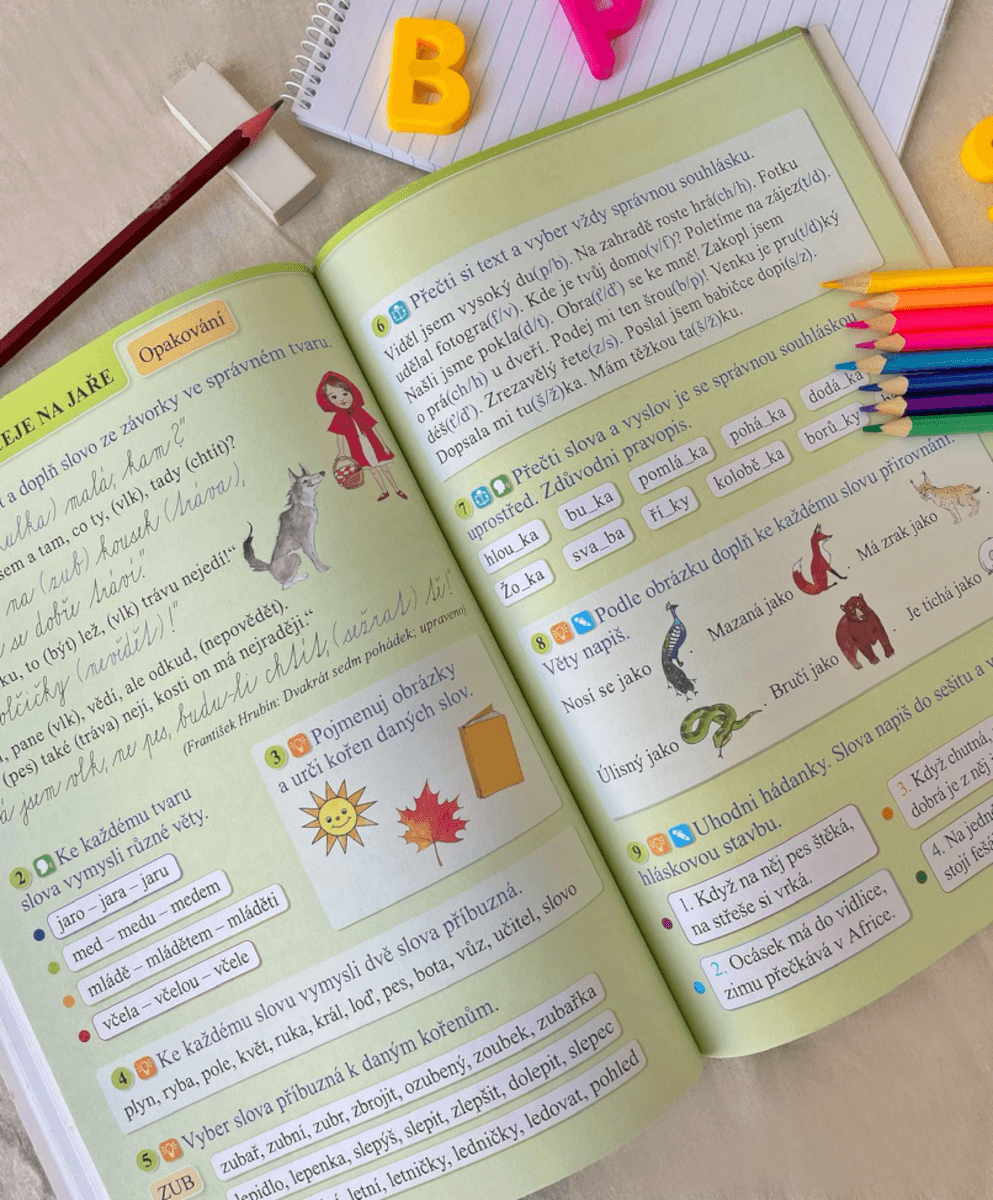 B
EJE NA JAŘE
Opakování
t a doplň slovo ze závorky ve správném tvaru.
malá, kam?"
sem a tam, co ty, (vlk), tady (chtít)?
na (zub) kousek (tráva),
se dobře tráví."
ku, to (být) lež, (vlk) trávu nejedí!“
(nevidět)!"
, pane (vlk), vědí, ale odkud, (nepovědět).
(pes) také (tráva) nejí, kosti on má nejraději.“
á jsem vlk, ne pes, budu-li chtít, (sežrat) tě!"
(František Hrubín: Dvakrát sedm pohádek; upraveno)
2 Ke každému tvaru
slova vymysli různé věty.
jaro – jara – jaru
med – medu – medem
mládě – mládětem – mláděti
včela – včelou – včele
3 Pojmenuj obrázky
a urči kořen daných slov.
4 Ke každému slovu vymysli dvě slova příbuzná.
plyn, ryba, pole, květ, ruka, král, loď, pes, bota, vůz, učitel, slovo
5 Vyber slova příbuzná k daným kořenům.
ZUB
zubař, zubní, zubr, zbrojit, ozubený, zoubek, zubařka
lepidlo, lepenka, slepýš, slepit, zlepšit, dolepit, slepec
letní, letničky, ledničky, ledovat, pohled
6 Přečti si text a vyber vždy správnou souhlásku.
Viděl jsem vysoký du(p/b). Na zahradě roste hrá(ch/h). Fotku
udělal fotogra(f/v). Kde je tvůj domo(v/f)? Poletíme na zájez(t/d).
Našli jsme pokla(d/t). Obra(ť/ď) se ke mně! Zakopl jsem
o prá(ch/h) u dveří. Podej mi ten šrou(b/p)! Venku je pru(t/d)ký
déš(ť/ď). Zrezavělý řete(z/s). Poslal jsem babičce dopi(s/z).
Dopsala mi tu(š/ž)ka. Mám těžkou ta(š/ž)ku.
7 Přečti slova a vyslov je se správnou souhláskou
uprostřed. Zdůvodni pravopis.
hlou_ka
bu_ka
pomlá_ka
pohá_ka
dodá_ka
Žo_ka
sva_ba
ří_ky
kolobě_ka
borů_ky
8 Podle obrázku doplň ke každému slovu přirovnání.
Věty napiš.
Nosí se jako
Mazaná jako
Má zrak jako
Úlisný jako
Bručí jako
Je tichá jako
9 Uhodni hádanky. Slova napiš do sešitu a
hláskovou stavbu.
1. Když na něj pes štěká,
na střeše si vrká.
2. Ocásek má do vidlice,
zimu přečkává v Africe.
3. Když chutná,
dobrá je z něj
4. Na jedn
stojí feš